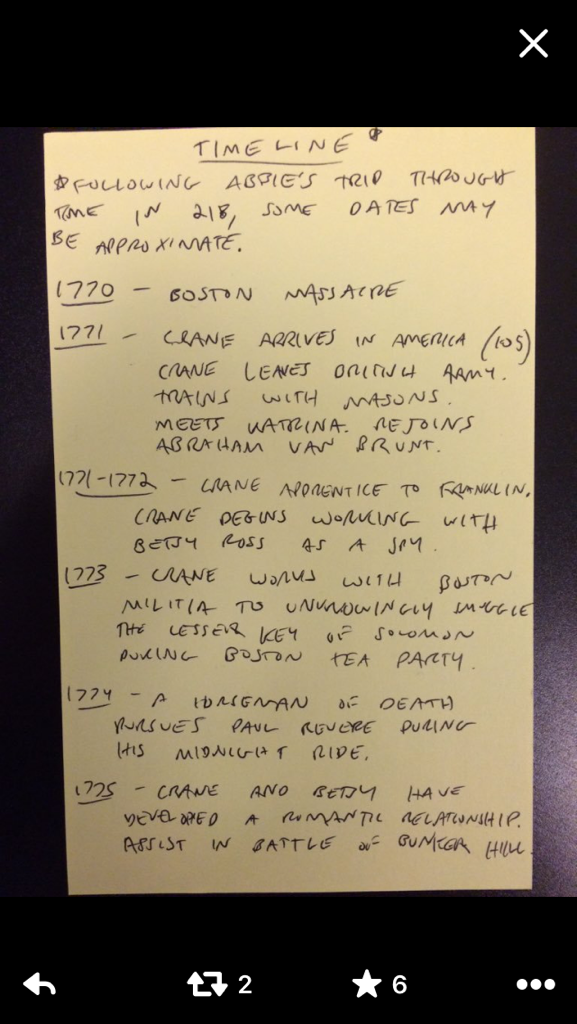 TIMELINE *
* FOLLOWING ABBIE'S TRIP THROUGH
TIME IN 218, SOME DATES MAY
BE APPROXIMATE.
1770 - BOSTON MASSACRE
1771 - CRANE ARRIVES IN AMERICA (105)
CRANE LEAVES BRITISH ARMY.
TRAINS WITH MASONS.
MEETS KATRINA. REJOINS
ABRAHAM VAN BRUNT.
1771-1772 - CRANE APPRENTICE TO FRANKLIN.
CRANE BEGINS WORKING WITH
BETSY ROSS AS A SPY.
1773 - CRANE WORKS WITH BOSTON
MILITIA TO UNKNOWINGLY SMUGGLE
THE LESSER KEY OF SOLOMON
DURING BOSTON TEA PARTY.
1774 - A HORSEMAN OF DEATH
PURSUES PAUL REVERE DURING
HIS MIDNIGHT RIDE.
1775 - CRANE AND BETSY HAVE
DEVELOPED A ROMANTIC RELATIONSHIP.
ASSIST IN BATTLE OF BUNKER HILL.
2
6